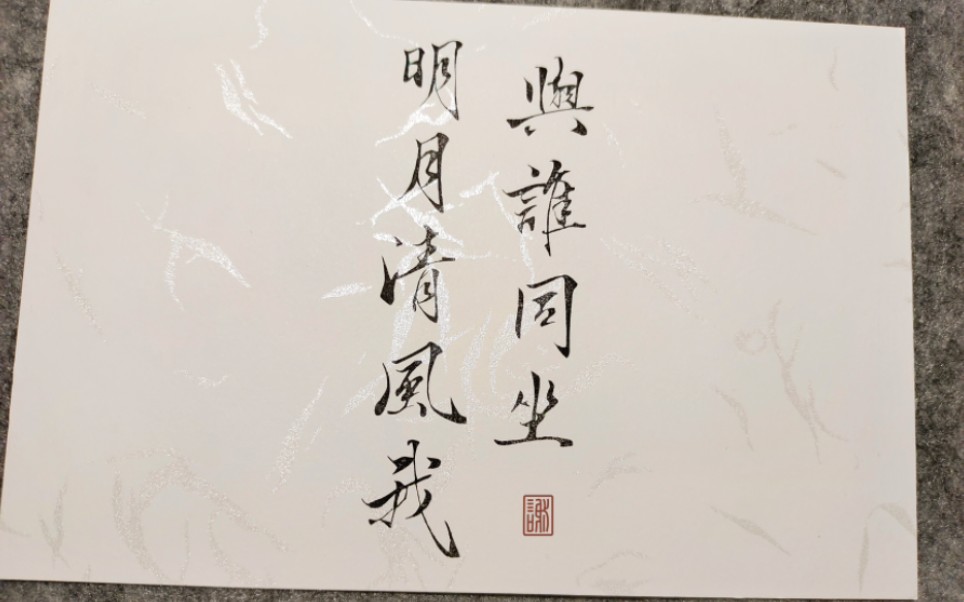 與誰同坐
明月清風我
謝